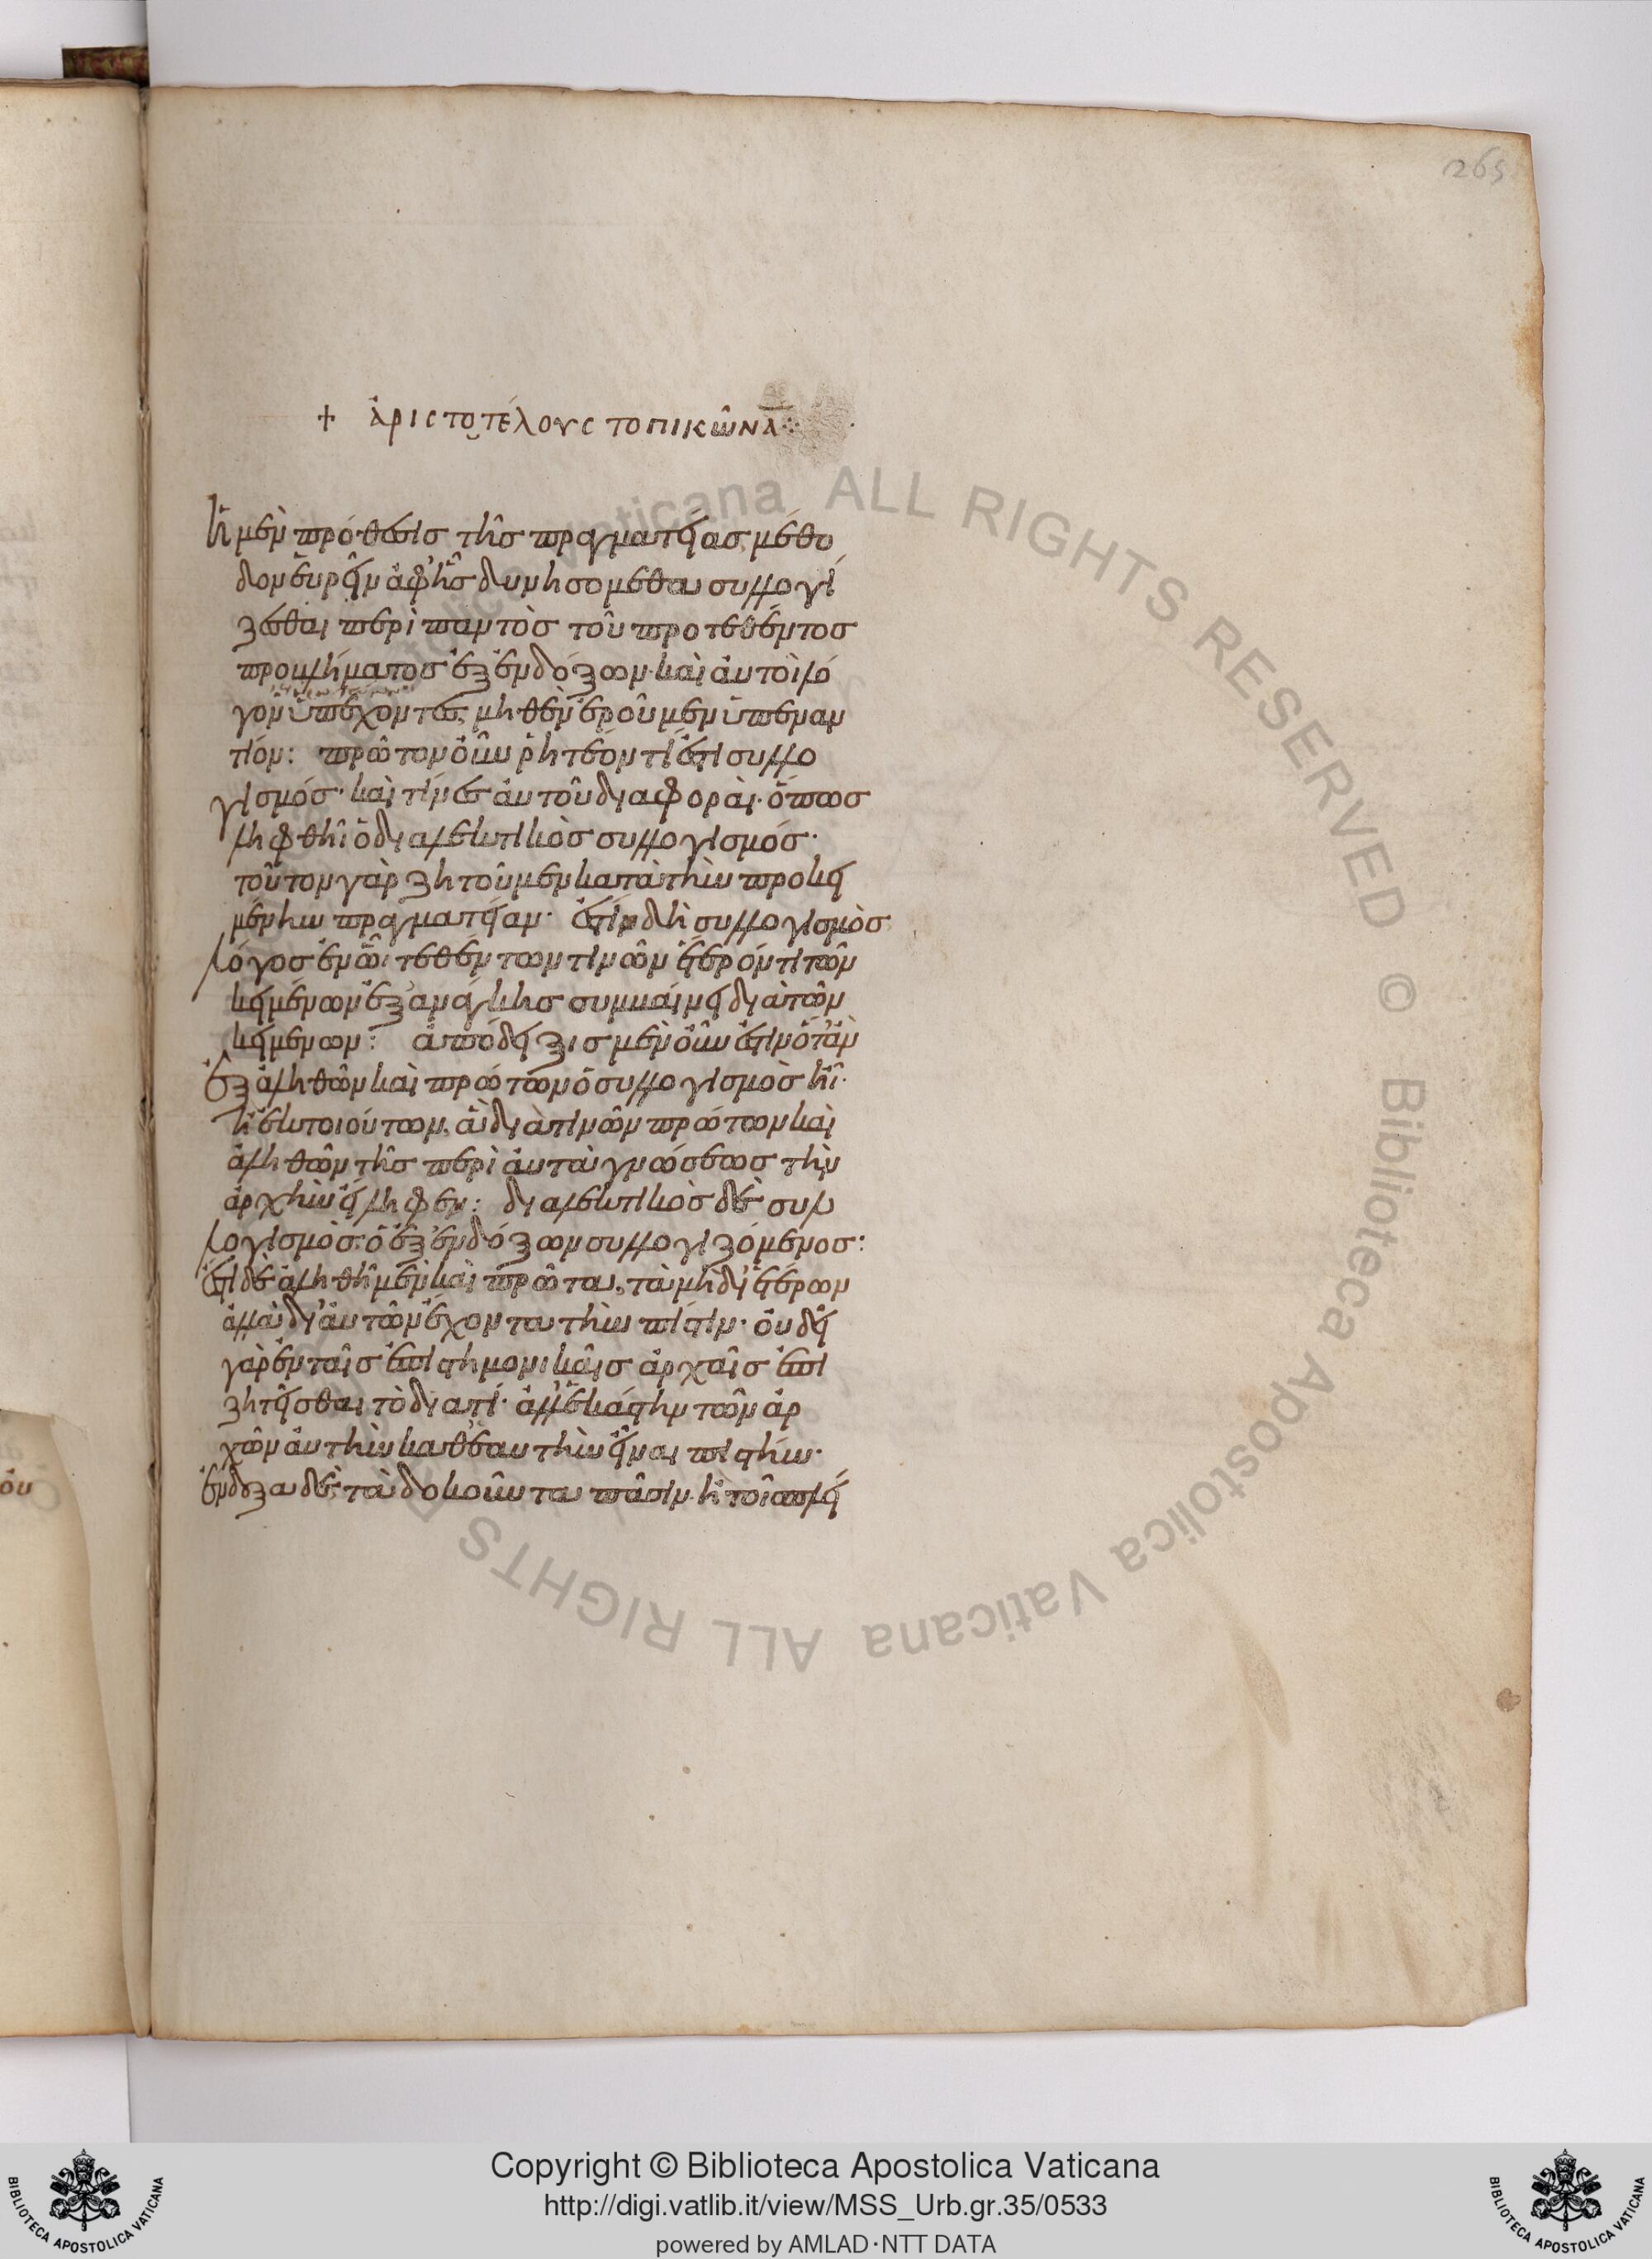 265
+ ἀριστοτέλους τοπικῶν α
ἡ μὲν πρόθεσις τῆς πραγματείας μέθο
δον εὑρεῖν ἀφ' ἧς δυνησόμεθα συλλογί
ζεσθαι περὶ παντὸς τοῦ προτεθέντος
προβλήματος ἐξ ἐνδόξων· καὶ αὐτοὶ λό
γον ὑπέχοντες, μηθὲν ἐροῦμεν ὑπεναν
τίον: πρῶτον οὖν ῥητέον τί ἐστι συλλο
γισμός· καὶ τίνες αὐτοῦ διαφοραί· ὅπως
ληφθῆι ὁ διαλεκτικὸς συλλογισμός·
τοῦτον γὰρ ζητοῦμεν κατὰ τὴν προκει
μένην πραγματείαν· ἔστι δὴ συλλογισμὸς
λόγος ἐν ὧι τεθέντων τινῶν ἕτερόν τι τῶν
κειμένων ἐξ ἀνάγκης συμβαίνει διὰ τῶν
κειμένων: ἀπόδειξις μὲν οὖν ἐστιν ὅταν
ἐξ ἀληθῶν καὶ πρώτων ὁ συλλογισμὸς ἦι·
ἢ ἐκ τοιούτων, ἃ διὰ τινῶν πρώτων καὶ
ἀληθῶν τῆς περὶ αὐτὰ γνώσεως τὴν
ἀρχὴν εἴληφεν: διαλεκτικὸς δὲ συλ
λογισμὸς· ὁ ἐξ ἐνδόξων συλλογιζόμενος:
ἔστι δὲ ἀληθῆ μὲν καὶ πρῶτα, τὰ μὴ δι' ἑτέρων
ἀλλὰ δι' αὐτῶν ἔχοντα τὴν πίστιν· οὐ δεῖ
γὰρ ἐν ταῖς ἐπιστημονικαῖς ἀρχαῖς ἐπι
ζητεῖσθαι τὸ διατί· ἀλλ' ἑκάστην τῶν ἀρ
χῶν αὐτὴν καθ' ἑαυτὴν εἶναι πιστήν·
ἔνδοξα δὲ, τὰ δοκοῦντα πᾶσιν· ἢ τοῖς πλεί
όυ
Copyright © Biblioteca Apostolica Vaticana
http://digi.vatlib.it/view/MSS_Urb.gr.35/0533
powered by AMLAD·NTT DATA
BIBLIOTECA APOSTOLICA VATICANA
BIBLIOTECA APOSTOLICA VATICANA
ALL RIGHTS RESERVED © Biblioteca Apostolica Vaticana